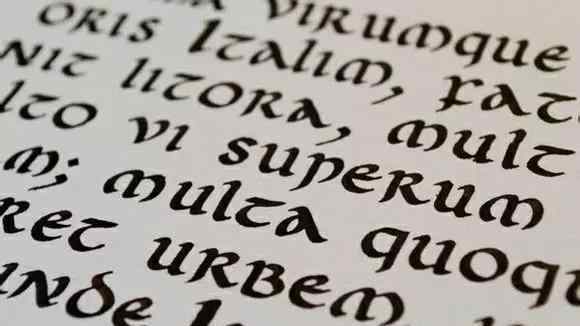 virumque
oris Italim, fat
nit litora, mult
lto vi superum
m; multa quoq
ret urbem
unde